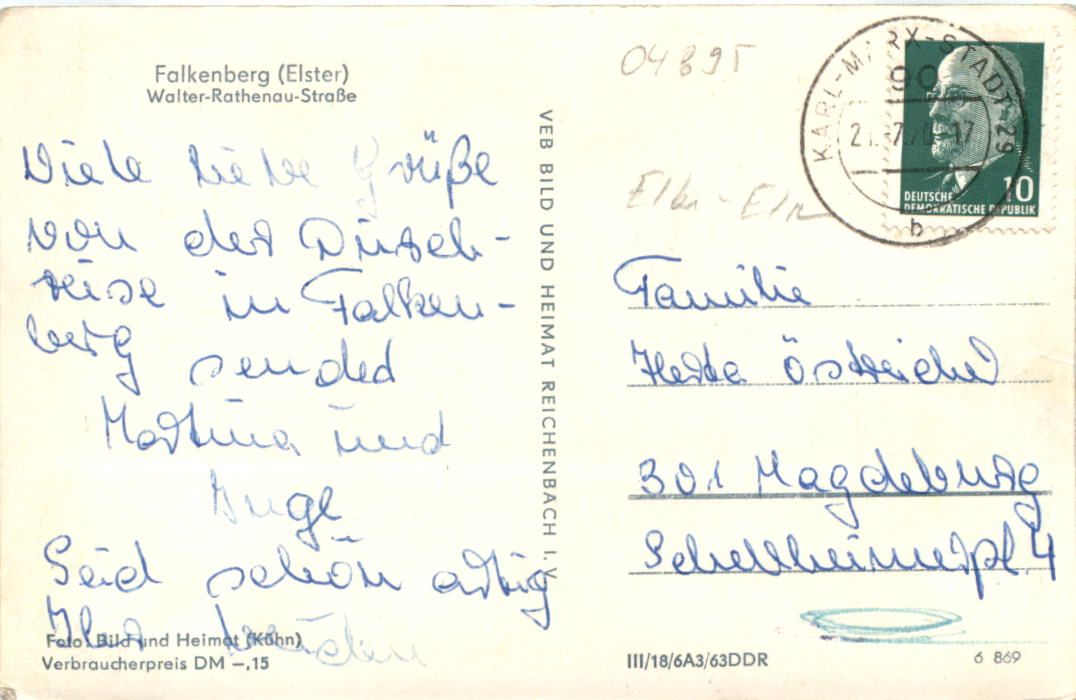 Falkenberg (Elster)
Walter-Rathenau-Straße
Viele liebe Grüße
von der Durch-
reise in Falken-
berg sended
Martina und
Inge
Seid schön artig
Foto: Bild und Heimat (Kühn)
Verbraucherpreis DM –,15
VEB BILD UND HEIMAT REICHENBACH I. V.
04895
Elbe-Elster
KARL-MARX-STADT 29
90
b
10
DEUTSCHE
DEMOKRATISCHE REPUBLIK
Familie
Östreich
301 Magdeburg
Schellheimerpl. 4
III/18/6A3/63DDR
6 869